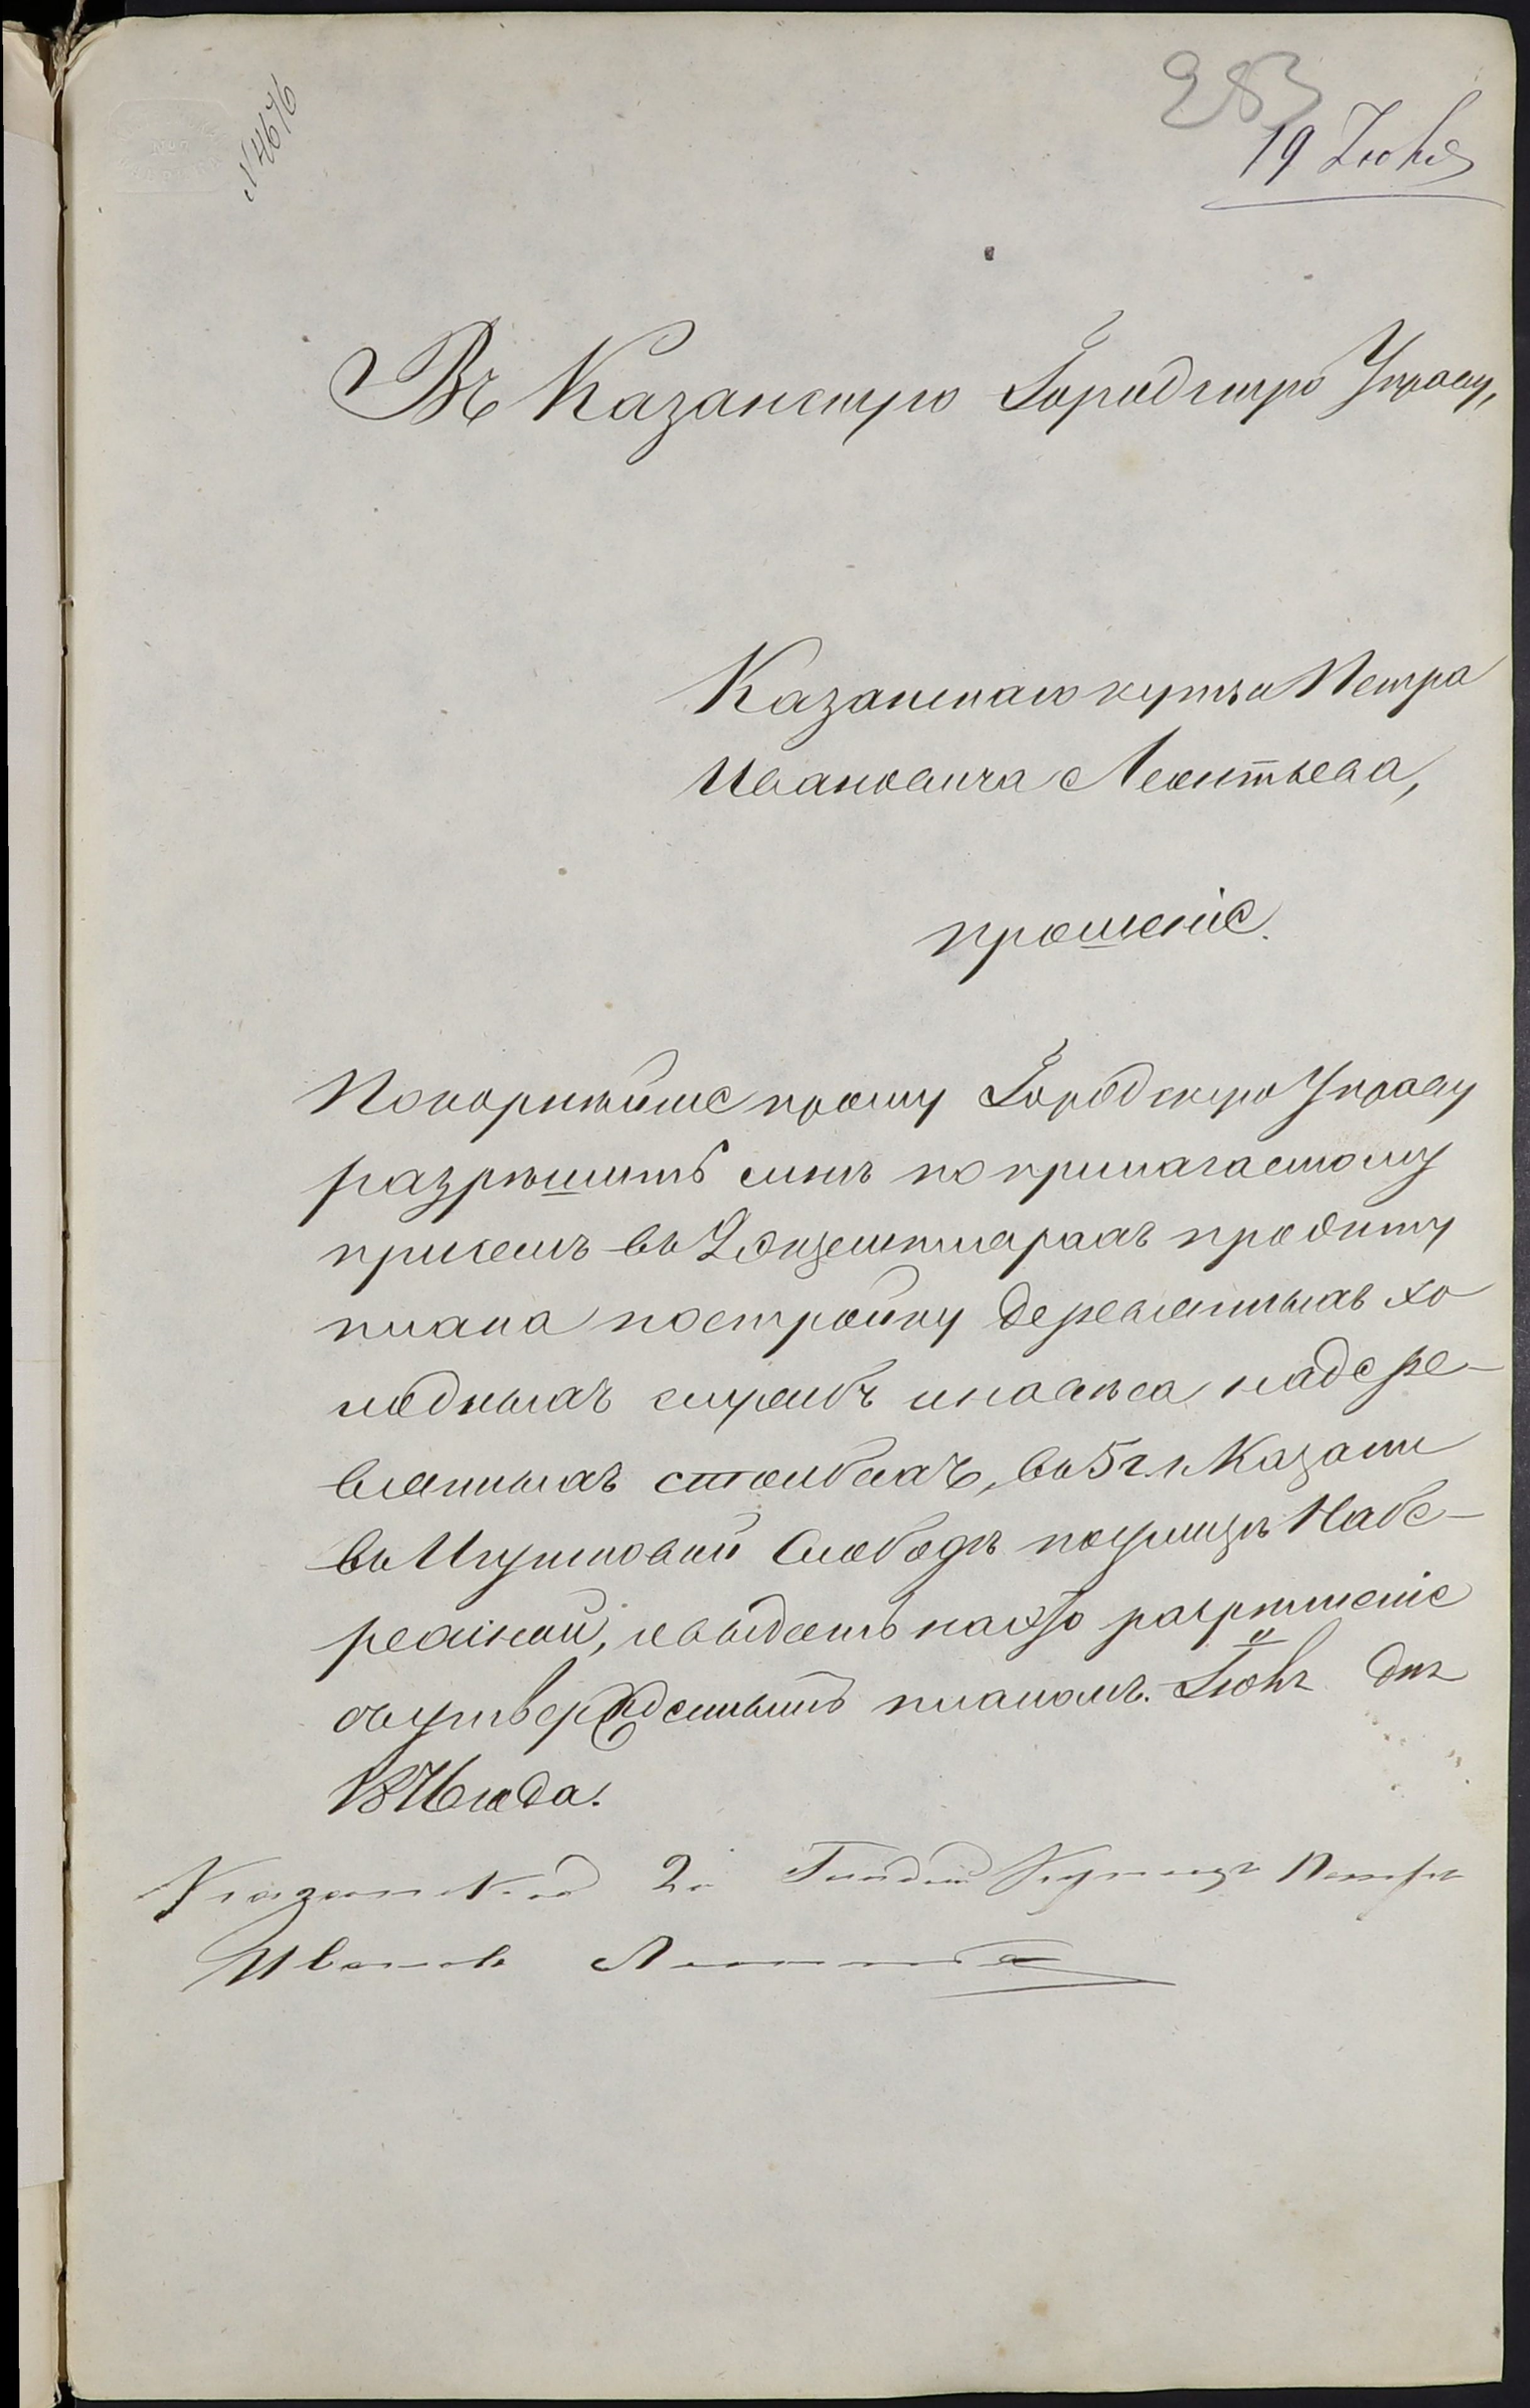 283
№ 4676
19 Іюня
Въ Казанскую Городскую Управу,
Казанскаго купца Петра
Ивановича Леонтьева,
прошеніе.
Покорнѣйше прошу Городскую Управу
разрѣшить мнѣ по прилагаемому
при семъ въ 2 экземплярахъ проэкту
плана постройку деревянныхъ хо
лодныхъ службъ и навѣса на дере-
вянныхъ столбахъ, въ 5 ч. г. Казани
въ Игумновой Слободѣ по улицѣ Набе-
режной, и выдать на это разрѣшеніе
съ утвержденнымъ планомъ. Іюня дня
1876 года.
Казанской 2й Гильдіи Купецъ Петръ
Ивановъ Леонтьевъ